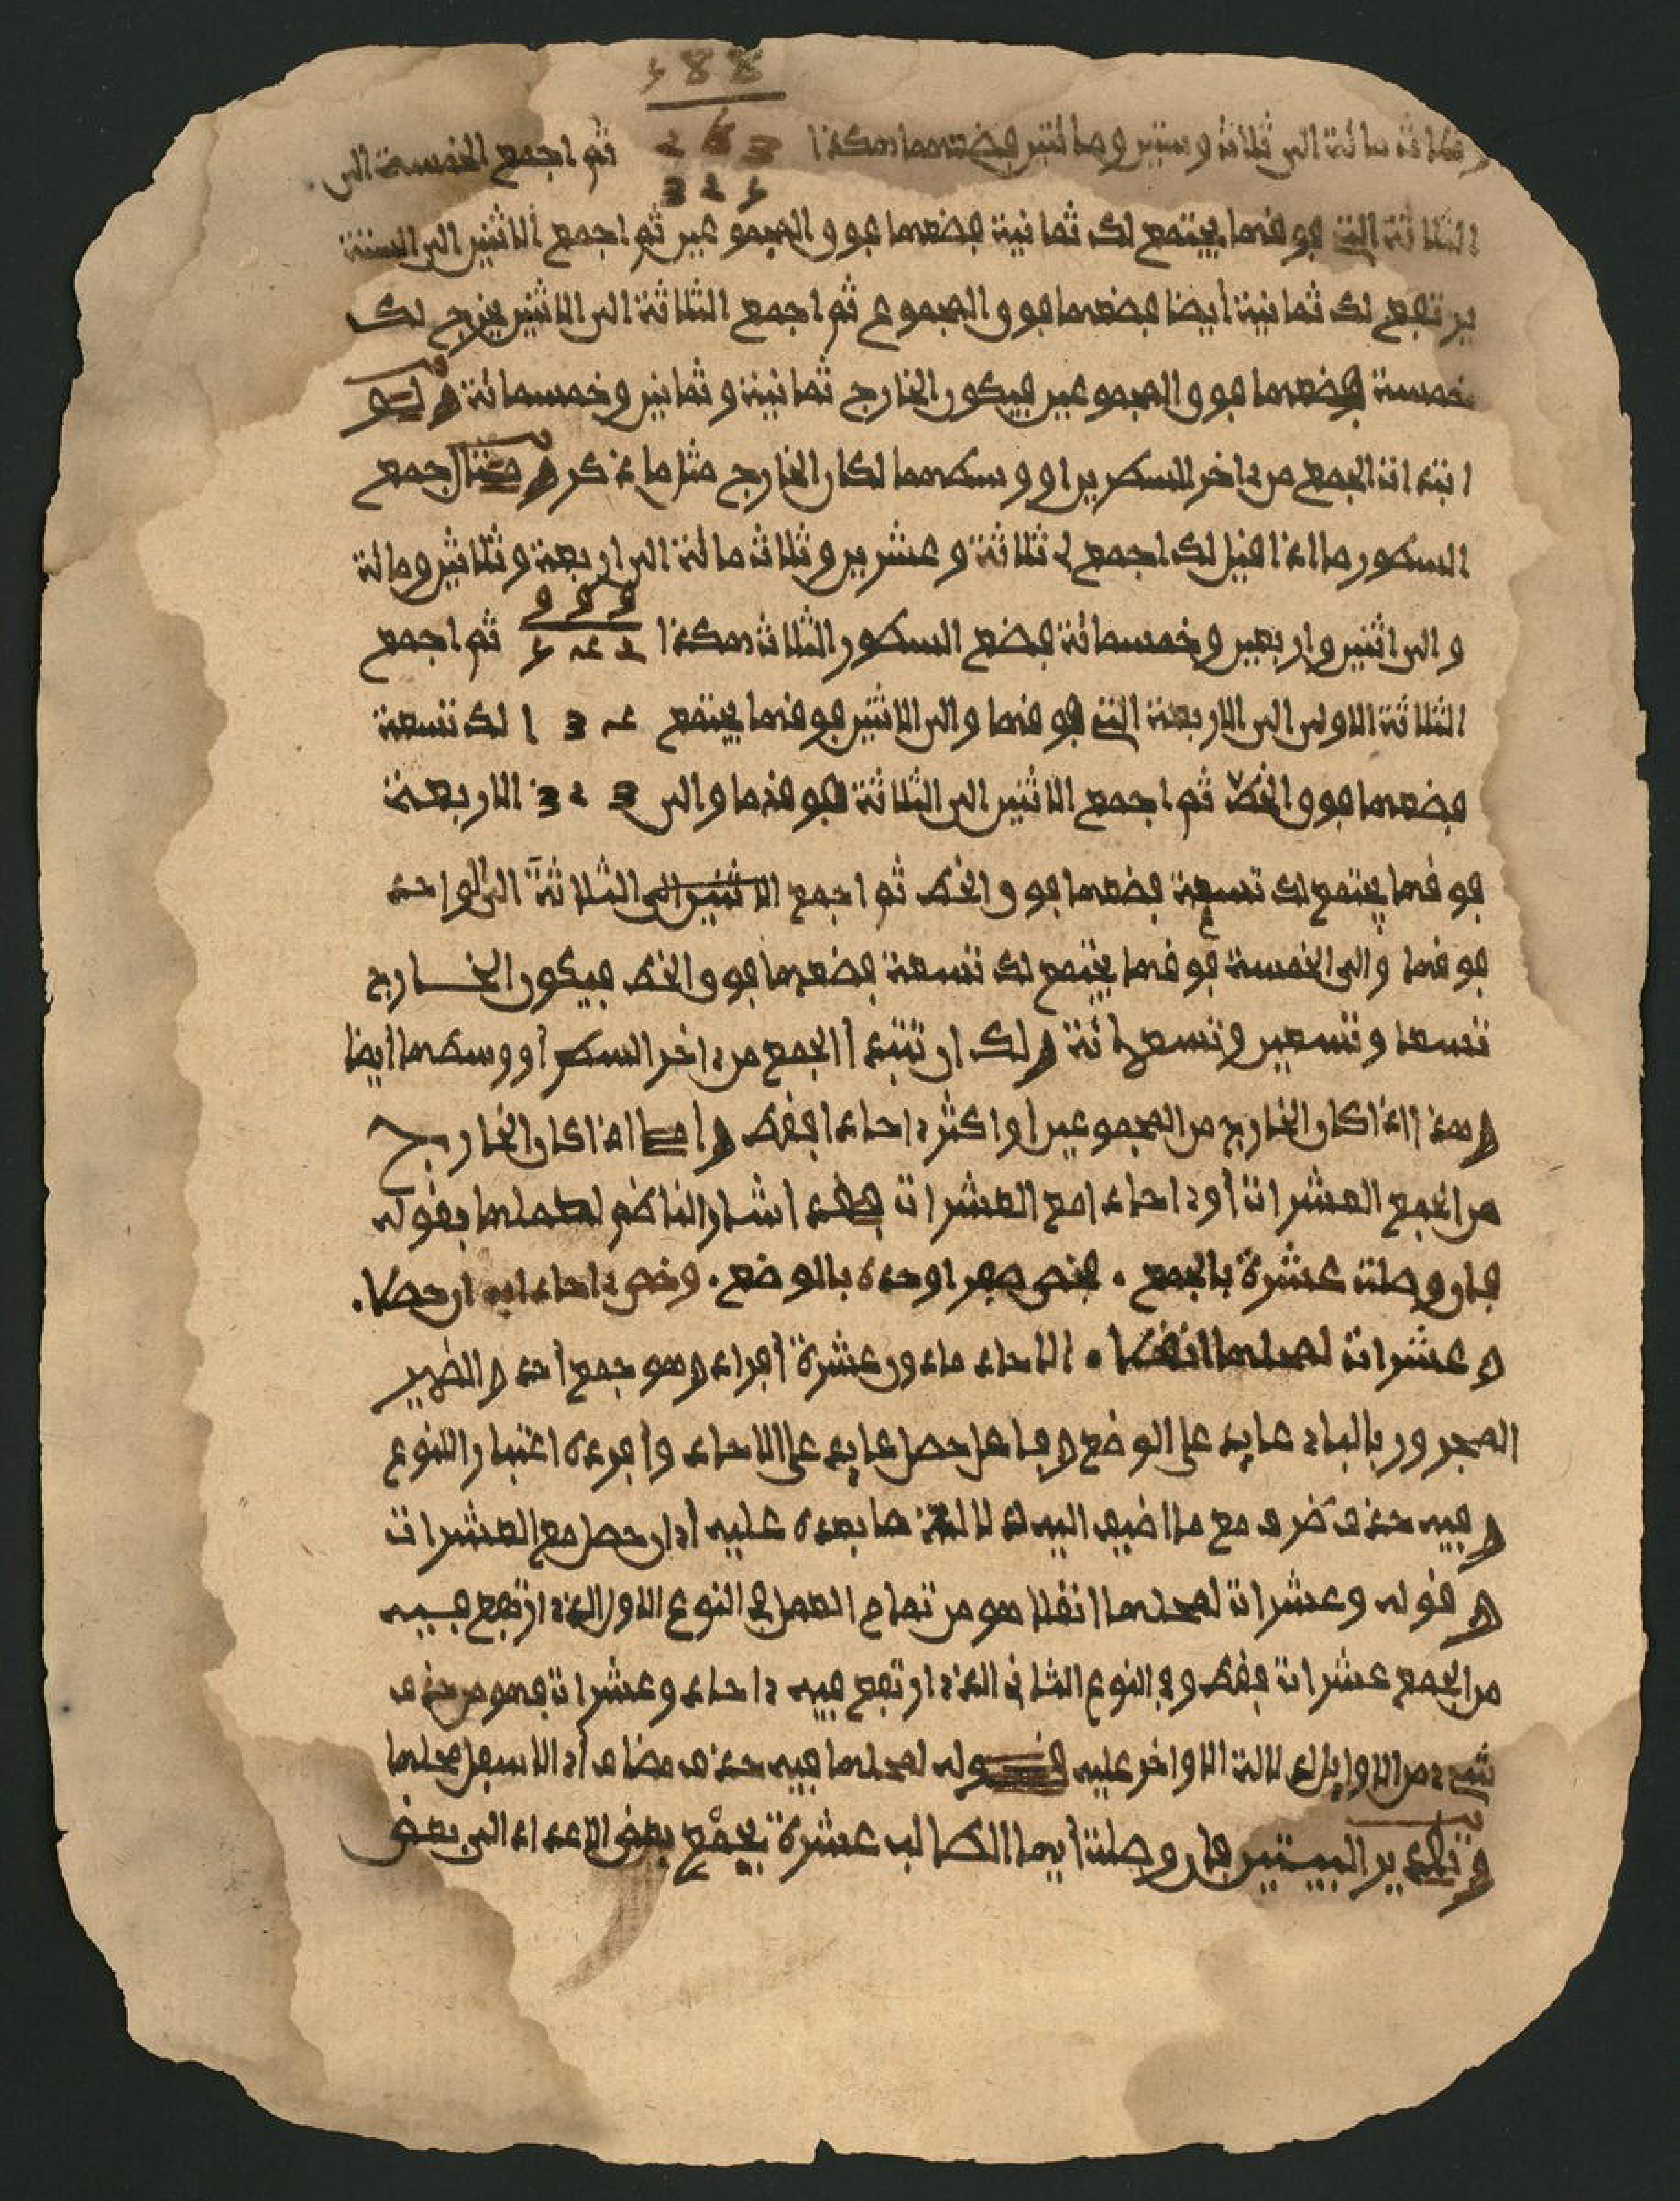 ٤ 8 8
وثلاثمائة الى ثلاثة وستين ومائتين فضعهما هكذا ثم اجمع الخمسة الى
الثلاثة التي فوقها يجتمع لك ثمانية فضعها فوق المجموعين ثم اجمع الاثنين الى الستة
يرتفع لك ثمانية ايضا فضعها فوق المجموع ثم اجمع الثلاثة الى الاثنين يخرج لك
خمسة فضعها فوق المجموعين فيكون الخارج ثمانية وثمانين وخمسمائة ولو
ابتدات الجمع من ءاخر السطرين او وسطهما لكان الخارج مثل ما ذكر ومثال جمع
السطور ما اذا قيل لك اجمع لي ثلاثة وعشرين وثلاث مائة الى اربعة وثلاثين ومائة
والى اثنين واربعين وخمسمائة فضع السطور الثلاثة هكذا ثم اجمع
الثلاثة الاولى الى الاربعة التي فوقها والى الاثنين فوقها يجتمع 3 1 لك تسعة
فضعها فوق الخط ثم اجمع الاثنين الى الثلاثة فوقها والى 3 2 3 الاربعة
فوقها يجتمع لك تسعة فضعها فوق الخط ثم اجمع الاثنين الى الثلاثة الى الواحد
فوقها والى الخمسة فوقها يجتمع لك تسعة فضعها فوق الخط فيكون الخارج
تسعا وتسعين وتسعمائة ولك ان تبتدا الجمع من ءاخر السطر أو وسطها ايضا
وهذا اذا كان الخارج من المجموعين او اكثر ءاحادا فقط واما اذا كان الخارج
من الجمع العشرات أو ءاحادا مع العشرات فقد اشار الناظم لعملها بقوله
فان وصلت عشرة بالجمع . فخص صفرا وحده بالوضع . وخص ءاحاد به ان حصلا .
وعشرات لمحلها انقلا . الاحاد ما دون عشرة أفراد وهو جمع أحد والضمير
المجرور بالباء عايد على الوضع وفاعل حصل عايد على الاحاد وأفرده اعتبار النوع
وفيه حذف ظرف مع ما اضيف اليه لدلالة ما بعده عليه أي ان حصل مع العشرات
وقوله وعشرات لمحلها انقلا هو من تمام العمل في النوع الاول الذي ارتفع فيه
من الجمع عشرات فقط وفي النوع الثاني الذي ارتفع فيه ءاحاد وعشرات فهو من حذف
شيء من الاوايل لدلالة الاواخر عليه وقوله لمحلها فيه حذف مضاف أي لاسفل محلها
وتقدير البيتين فان وصلت أيها الطالب عشرة بجمع بعض الاعداد الى بعض